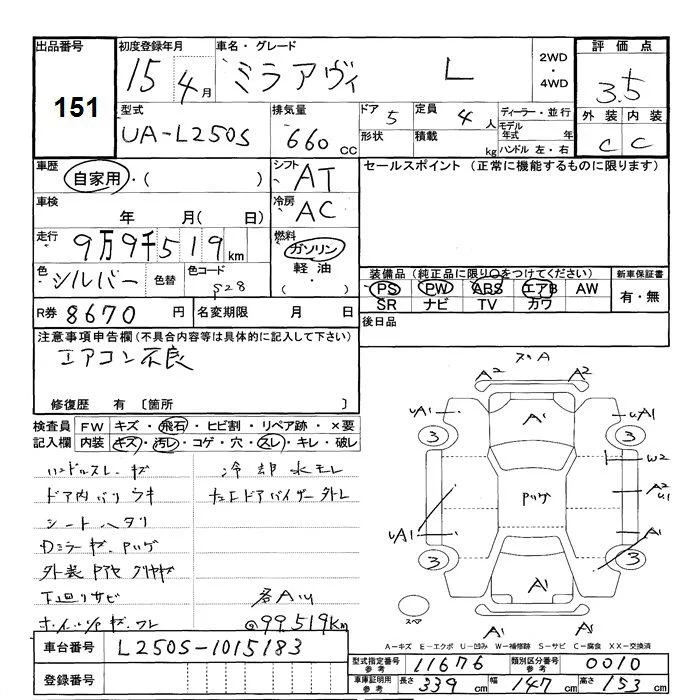 出品番号 初度登録年月 車名・グレード 評価点
151 15年 4月 ミラアヴィ L 2WD・4WD 3.5
外装 内装
C C
型式 排気量 ドア 5 定員 4人 ディーラー・並行
UA-L250S 660cc 形状 積載 kg モデル年式 年
ハンドル 左・右
車歴 自家用・( ) シフト AT セールスポイント (正常に機能するものに限ります)
車検 年 月( 日) 冷房 AC
走行 9万9千519km 燃料 ガソリン
軽油
( ・ )
色 シルバー 色替 色コード S28
装備品 (純正品に限り○をつけてください) 新車保証書
PS PW ABS エアB AW 有・無
SR ナビ TV カワ
R券 8670円 名変期限 月 日 後日品
注意事項申告欄(不具合内容等は具体的に記入して下さい)
エアコン不良
修復歴 有 〔箇所 〕
検査員記入欄 FW キズ・飛石・ヒビ割・リペア跡・×要
内装 キズ・汚レ・コゲ・穴・スレ・キレ・破レ
ハンドルスレ、キズ 冷却水モレ
ドア内バリウキ
シートヘタリ
Dミラーキズ、Pハゲ
下廻りサビ 各Aハゲ
◎99,519km
スペA
A2 A2
uA1 A1 uA1
3 3
W2
Pハゲ A2
u1
uA1 A1
3 3
A1
スペ A1 A1
A-キズ E-エクボ U-凹み W-補修跡 S-サビ C-腐食 XX-交換済
車台番号 L250S-1015183
登録番号
型式指定番号参考 11676 類別区分番号参考 0010
車庫証明用参考 長さ 339cm 幅 147cm 高さ 153cm